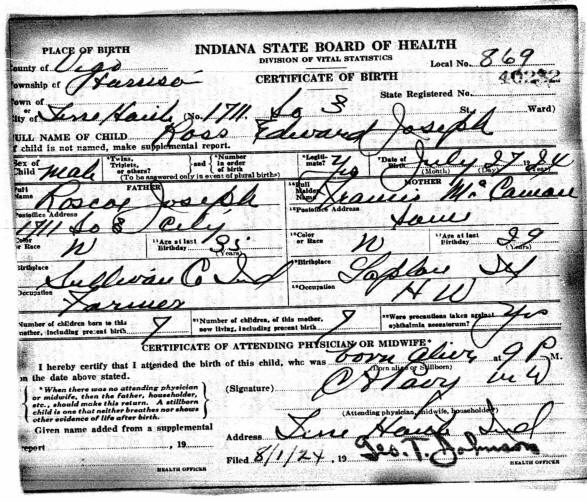 PLACE OF BIRTH
INDIANA STATE BOARD OF HEALTH
County of Vigo
DIVISION OF VITAL STATISTICS
Local No. 869
Township of Harrison
CERTIFICATE OF BIRTH
40232
Town of
State Registered No.
or
City of Terre Haute (No. 1711 So 3 St. Ward)
FULL NAME OF CHILD Ross Edward Joseph
If child is not named, make supplemental report.
Sex of Child Male
Twins, Triplets, or others?
and
Number in order of birth
(To be answered only in event of plural births)
Legitimate? Yes
Date of Birth July 27 1924
(Month) (Day) (Year)
FATHER
MOTHER
Full Name Roscoe Joseph
Full Maiden Name Francis
Postoffice Address
1711 So 3 City
Postoffice Address Same
Color or Race W
Age at last Birthday 35
(Years)
Color or Race W
Age at last Birthday 29
(Years)
Birthplace Sullivan Co Ind
Birthplace
Occupation Farmer
Occupation H W
Number of children born to this mother, including present birth 7
Number of children, of this mother, now living, including present birth 7
Were precautions taken against ophthalmia neonatorum? Yes
CERTIFICATE OF ATTENDING PHYSICIAN OR MIDWIFE*
I hereby certify that I attended the birth of this child, who was born alive at 9 P. M.
on the date above stated.
(Born alive or Stillborn)
* When there was no attending physician or midwife, then the father, householder, etc., should make this return. A stillborn child is one that neither breathes nor shows other evidence of life after birth.
(Signature)
(Attending physician, midwife, householder)
Given name added from a supplemental
report , 19
HEALTH OFFICER
Address Terre Haute Ind
Filed 8/1/24, 19 Geo. T. Johnson
HEALTH OFFICER